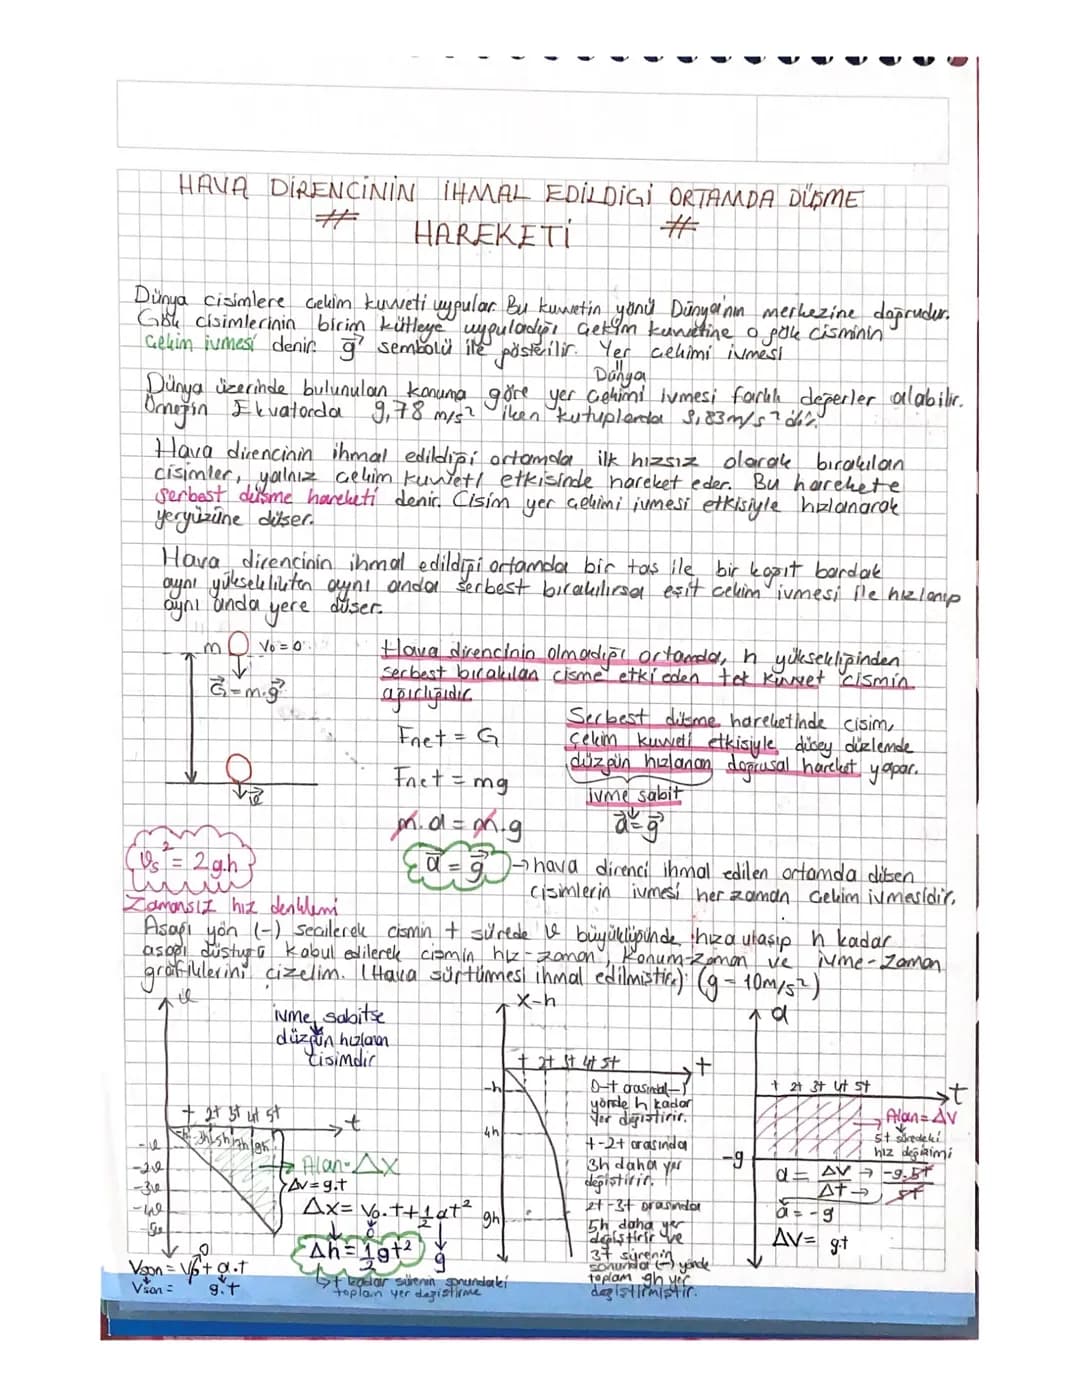 HAVA DİRENCİNİN İHMAL EDİLDİGİ ORTAMDA DÜŞME
HAREKETİ
Dünya cisimlere çekim kuvveti uygular. Bu kuvvetin yönü Dünya'nın merkezine doğrudur.
Gök cisimlerinin birim kütleye uyguladığı çekim kuvvetine o gök cisminin
çekim ivmesi denir. g sembolü ile gösterilir. Yer çekimi ivmesi
Dünya
Dünya üzerinde bulunulan konuma göre yer çekimi ivmesi farklı değerler alabilir.
Örneğin Ekvatorda 9,78 m/s² iken kutuplarda 9,83m/s² dir.
Hava direncinin ihmal edildiği ortamda ilk hızsız olarak bırakılan
cisimler, yalnız çekim kuvveti etkisinde hareket eder. Bu harekete
serbest düşme hareketi denir. Cisim yer çekimi ivmesi etkisiyle hızlanarak
yeryüzüne düşer.
Hava direncinin ihmal edildiği ortamda bir taş ile bir kağıt bardak
aynı yükseklikten aynı anda serbest bırakılırsa eşit çekim ivmesi ile hızlanıp
aynı anda yere düşer.
m V₀ = 0
G = m.g
h
ϑ
Hava direncinin olmadığı ortamda, h yüksekliğinden
serbest bırakılan cisme etki eden tek kuvvet cismin
ağırlığıdır
Fnet = G
Fnet = mg
m.a = m.g
a = g → hava direnci ihmal edilen ortamda düşen
cisimlerin ivmesi her zaman çekim ivmesidir.
Serbest düşme hareketinde cisim,
çekim kuvveti etkisiyle düşey düzlemde
düzgün hızlanan doğrusal hareket yapar.
ivme sabit
a = g
ϑs² = 2g.h
Zamansız hız denklemi
Aşağı yön (-) seçilerek cismin t sürede ϑ büyüklüğünde hıza ulaşıp h kadar
aşağı düştüğü kabul edilerek cismin hız-zaman, konum-zaman ve ivme-zaman
grafiklerini çizelim. (Hava sürtünmesi ihmal edilmiştir.) (g = 10m/s²)
ϑ
ivme sabitse
düzgün hızlanan
cisimdir
t 2t 3t 4t 5t
t
h 3h 5h 7h 9h
-ϑ
-2ϑ
-3ϑ
-4ϑ
-5ϑ
Alan = ΔX
Δv = g.t
Δx = V₀.t + 1/2 at²
0
g
Δh = 1/2 gt²
t kadar sürenin sonundaki
toplam yer değiştirme
Vson = V₀ + a.t
0
Vson = g.t
x-h
t 2t 3t 4t 5t
t
-h
4h
9h
0-t arasında (-)
yönde h kadar
yer değiştirir.
t-2t arasında
3h daha yer
değiştirir.
2t-3t arasında
5h daha yer
değiştirir ve
3t sürenin
sonunda (-) yönde
toplam 9h yer
değiştirmiştir.
a
t 2t 3t 4t 5t
t
-g
Alan = ΔV
5t süredeki
hız değişimi
a = ΔV → -g.5t
Δt → 5t
a = -g
ΔV = g.t